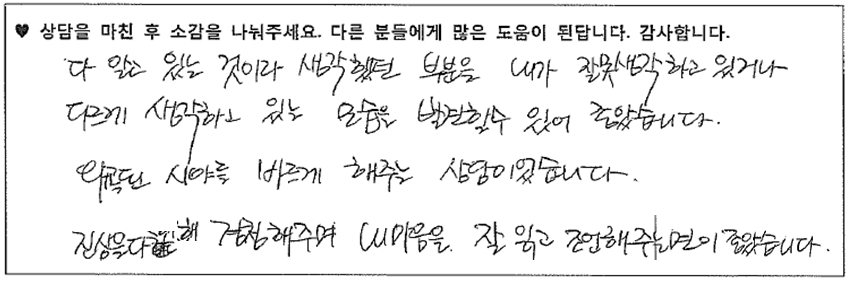 ♥ 상담을 마친 후 소감을 나눠주세요. 다른 분들에게 많은 도움이 된답니다. 감사합니다.
다 알고 있는 것이라 생각했던 부분을 내가 잘못생각하고 있거나
다르게 생각하고 있는 모습을 발견할수 있어 좋았습니다.
왜곡된 시야를 바르게 해주는 상담이었습니다.
진심을다해 경청해주며 내마음을 잘 읽고 조언해주는면이 좋았습니다.